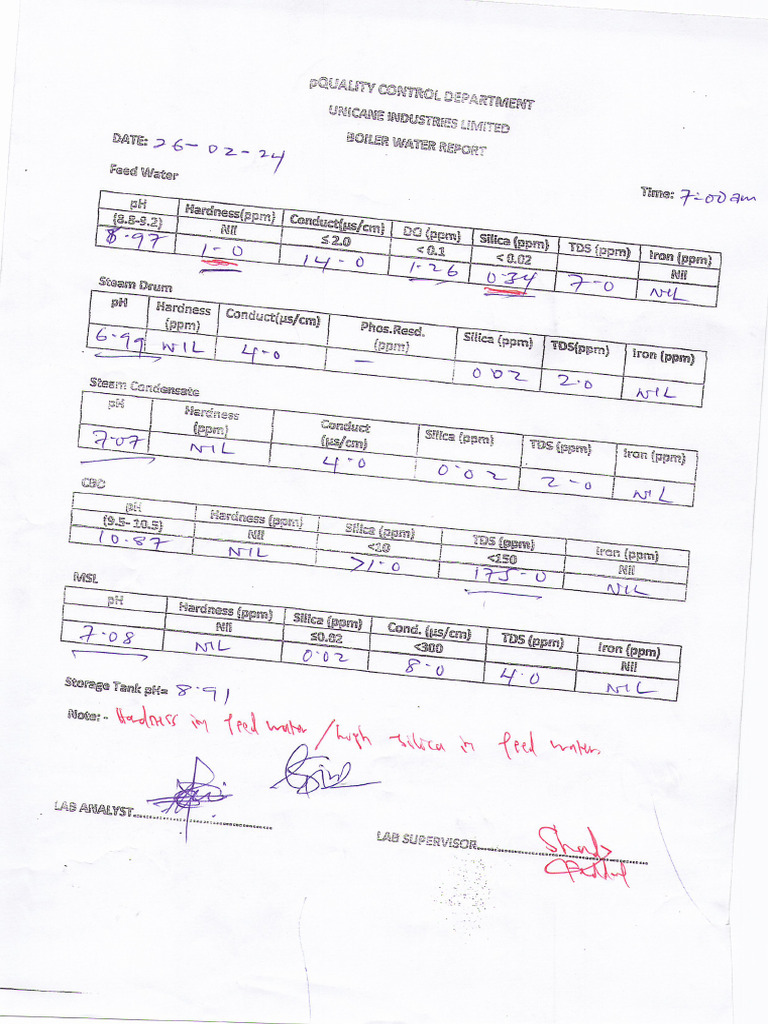 pQUALITY CONTROL DEPARTMENT
UNICANE INDUSTRIES LIMITED
BOILER WATER REPORT
DATE: 26-02-24
Time: 7:00am
Feed Water
pH Hardness(ppm) Conduct(µs/cm) DO (ppm) Silica (ppm) TDS (ppm) Iron (ppm)
(8.8-9.2) Nil ≤ 2.0 < 0.1 < 0.02 Nil
8.97 1-0 14-0 1.26 0.34 7-0 NIL
Steam Drum
pH Hardness (ppm) Conduct(µs/cm) Phos.Resd. (ppm) Silica (ppm) TDS(ppm) Iron (ppm)
6.99 NIL 4-0 — 0.02 2.0 NIL
Steam Condensate
pH Hardness (ppm) Conduct (µs/cm) Silica (ppm) TDS (ppm) Iron (ppm)
7.07 NIL 4.0 0.02 2-0 NIL
pH Hardness (ppm) Silica (ppm) TDS (ppm) Iron (ppm)
(9.5- 10.5) Nil <10 <150 Nil
10.87 NIL >1.0 175-0 NIL
MSL
pH Hardness (ppm) Silica (ppm) Cond. (µs/cm) TDS (ppm) Iron (ppm)
Nil ≤0.02 <300 Nil
7.08 NIL 0.02 8.0 4.0 NIL
Storage Tank pH= 8.91
Note: - Hardness in feed water / high silica in feed water
LAB ANALYST
LAB SUPERVISOR